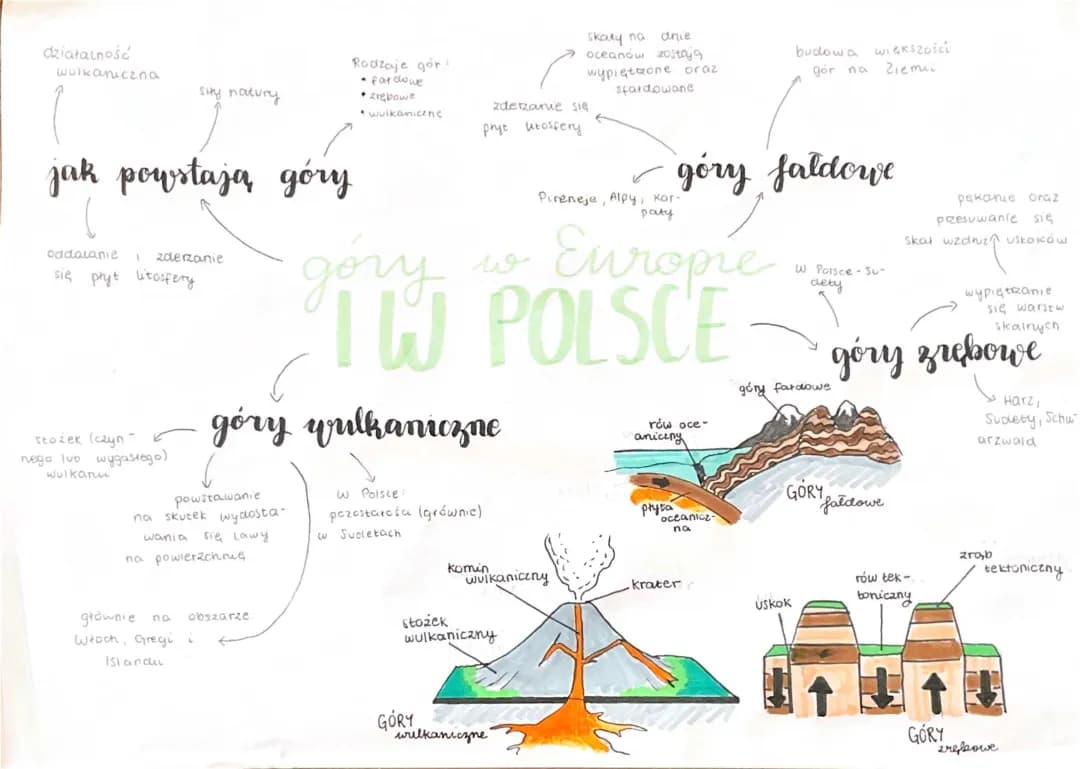 góry w Europie
I W POLSCE
jak powstają góry
działalność
wulkaniczna
siły natury
Rodzaje gór:
• fałdowe
• zrębowe
• wulkaniczne
oddalanie i zderzanie
się płyt litosfery
góry fałdowe
zderzanie się
płyt litosfery
skały na dnie
oceanów zostają
wypiętrzone oraz
sfałdowane
budowa większości
gór na Ziemi
Pireneje, Alpy, Kar-
paty
góry zrębowe
W Polsce - Su-
dety
wypiętrzanie
się warstw
skalnych
pękanie oraz
przesuwanie się
skał wzdłuż uskoków
Harz,
Sudety, Schw
arzwald
góry wulkaniczne
stożek (czyn-
nego lub wygasłego)
wulkanu
powstawanie
na skutek wydosta-
wania się lawy
na powierzchnię
W Polsce:
pozostałości (głównie)
w Sudetach
głównie na obszarze
Włoch, Grecji i
Islandii
góry fałdowe
rów oce-
aniczny
płyta
oceanicz-
na
GÓRY
fałdowe
komin
wulkaniczny
krater
stożek
wulkaniczny
GÓRY
wulkaniczne
zrąb
tektoniczny
rów tek-
toniczny
uskok
GÓRY
zrębowe